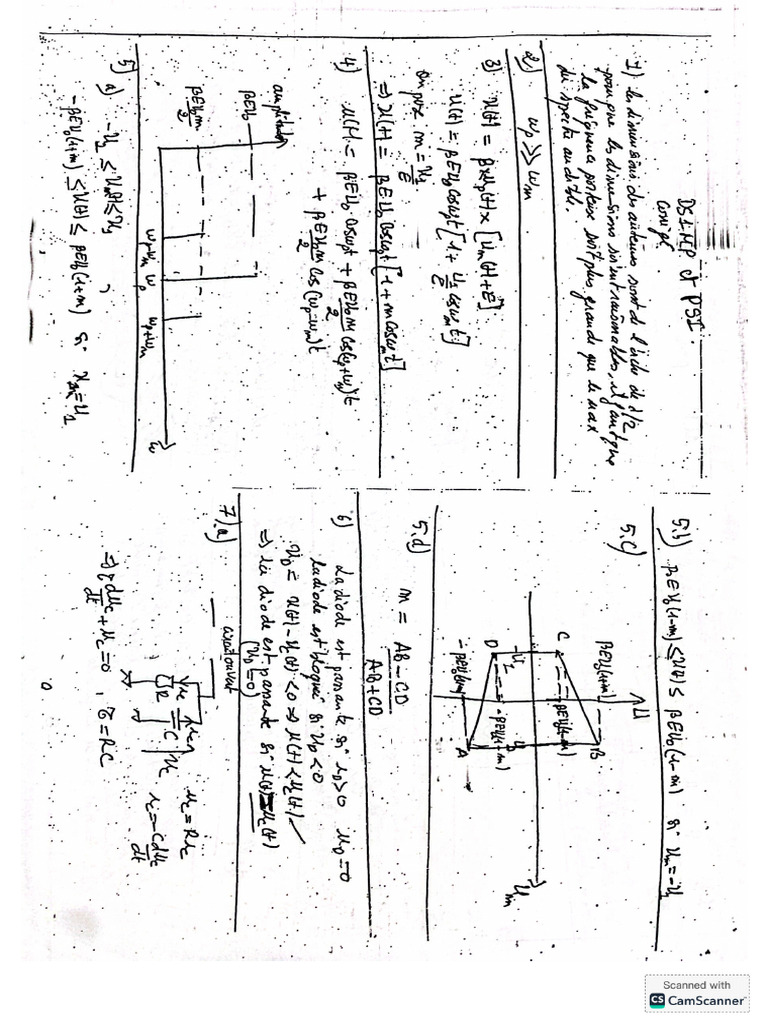 DS1-MP et PSI.
Corrigé
1) les dimensions des antennes sont de l'ordre de λ/2
pour que les dimensions soient raisonnables, il faut que
la fréquence porteuse soit plus grande que le max
du spectre audible.
2) ωp >> ωm
3) u(t) = β × up(t) × [um(t) + E]
u(t) = βEU0 cosωpt [1 + U1/E cosωmt]
on pose m = U1/E
⇒ u(t) = βEU0 cosωpt [1 + m cosωmt]
4) u(t) = βEU0 cosωpt + βEU0m/2 cos(ωp+ωm)t
+ βEU0m/2 cos(ωp-ωm)t
amplitude
βEU0
βEU0m/2
ωp-ωm ω0 ωp+ωm ω
5) a) -U1 ≤ um(t) ≤ U1
-βEU0(1+m) ≤ u(t) ≤ βEU0(1+m) si um = U1
5.b) βEU0(1-m) ≤ u(t) ≤ βEU0(1-m) si um = -U1
5.c)
U
βEU0(1+m)
B
C
βEU0(1-m)
-U1
U1
um
D
-βEU0(1-m)
A
5.d) m = AB - CD / AB + CD
6) La diode est passante si uD > 0 uD = 0
la diode est bloqué si uD < 0
uD = u(t) - uc(t) < 0 ⇒ u(t) < uc(t)
⇒ la diode est passante si u(t) = uc(t)
(uD = 0)
7) a)
circuit ouvert
R
C
uc
uc = Ric
i = -C duc/dt
⇒ τ duc/dt + uc = 0, τ = RC
Scanned with
CS CamScanner